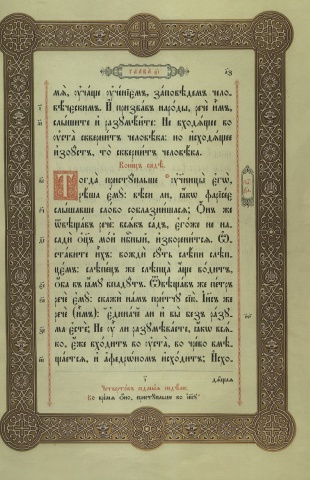 мѧ̀, оу҆ча́ще оу҆че́нїємъ, за́повѣдемъ чело-
вѣ́ческимъ. И҆ призва́въ наро́ды, речѐ и҆̀мъ,
слы́шите и҆ разꙋмѣ́йте: Не входѧ́щее во
оу҆ста̀ скверни́тъ человѣ́ка: но и҆сходѧ́щее
и҆зоу́стъ, то̀ скверни́тъ человѣ́ка.
Коне́цъ
Тогда̀ пристꙋ́пльше оу҆ченицы̀ є҆гѡ̀,
рѣ́ша є҆мꙋ̀: вѣ́си ли, ꙗ҆́кѡ фарїсе́є
слы́шавше сло́во соблазни́шасѧ; Ѻ҆́нъ же
ѿвѣща́въ речѐ: всѧ́къ са́дъ, є҆го́же не на-
садѝ ѻ҆ц҃ъ мо́й нбⷭ҇ный, и҆скорени́тсѧ. Ѡ҆-
ста́вите и҆̀хъ: вождѝ сꙋ́ть слѣ́пи слѣп-
це́мъ: слѣпе́цъ же слѣпца̀ а҆́ще во́дитъ,
ѻ҆́ба въ ꙗ҆́мꙋ впадꙋ́тъ. Ѿвѣща́въ же пе́тръ
речѐ є҆мꙋ̀: скажѝ на́мъ при́тчꙋ сїю̀. І҆и҃съ же
речѐ (и҆̀мъ): є҆ди́наче ли и҆ вы̀ без̾ ра́зꙋ-
ма є҆стѐ; Не оу҆̀ ли разꙋмѣва́ете, ꙗ҆́кѡ всѧ́-
ко, є҆́же вхо́дитъ во оу҆ста̀, во чре́во вмѣ-
ща́етсѧ, и҆ а҆федро́номъ и҆схо́дитъ; И҆схо-
дѧ́щаѧ
Четверто́къ седми́цы недѣ́ли.
Во вре́мѧ ѻ҆́но, пристꙋ́пльше ко і҆и҃сꙋ